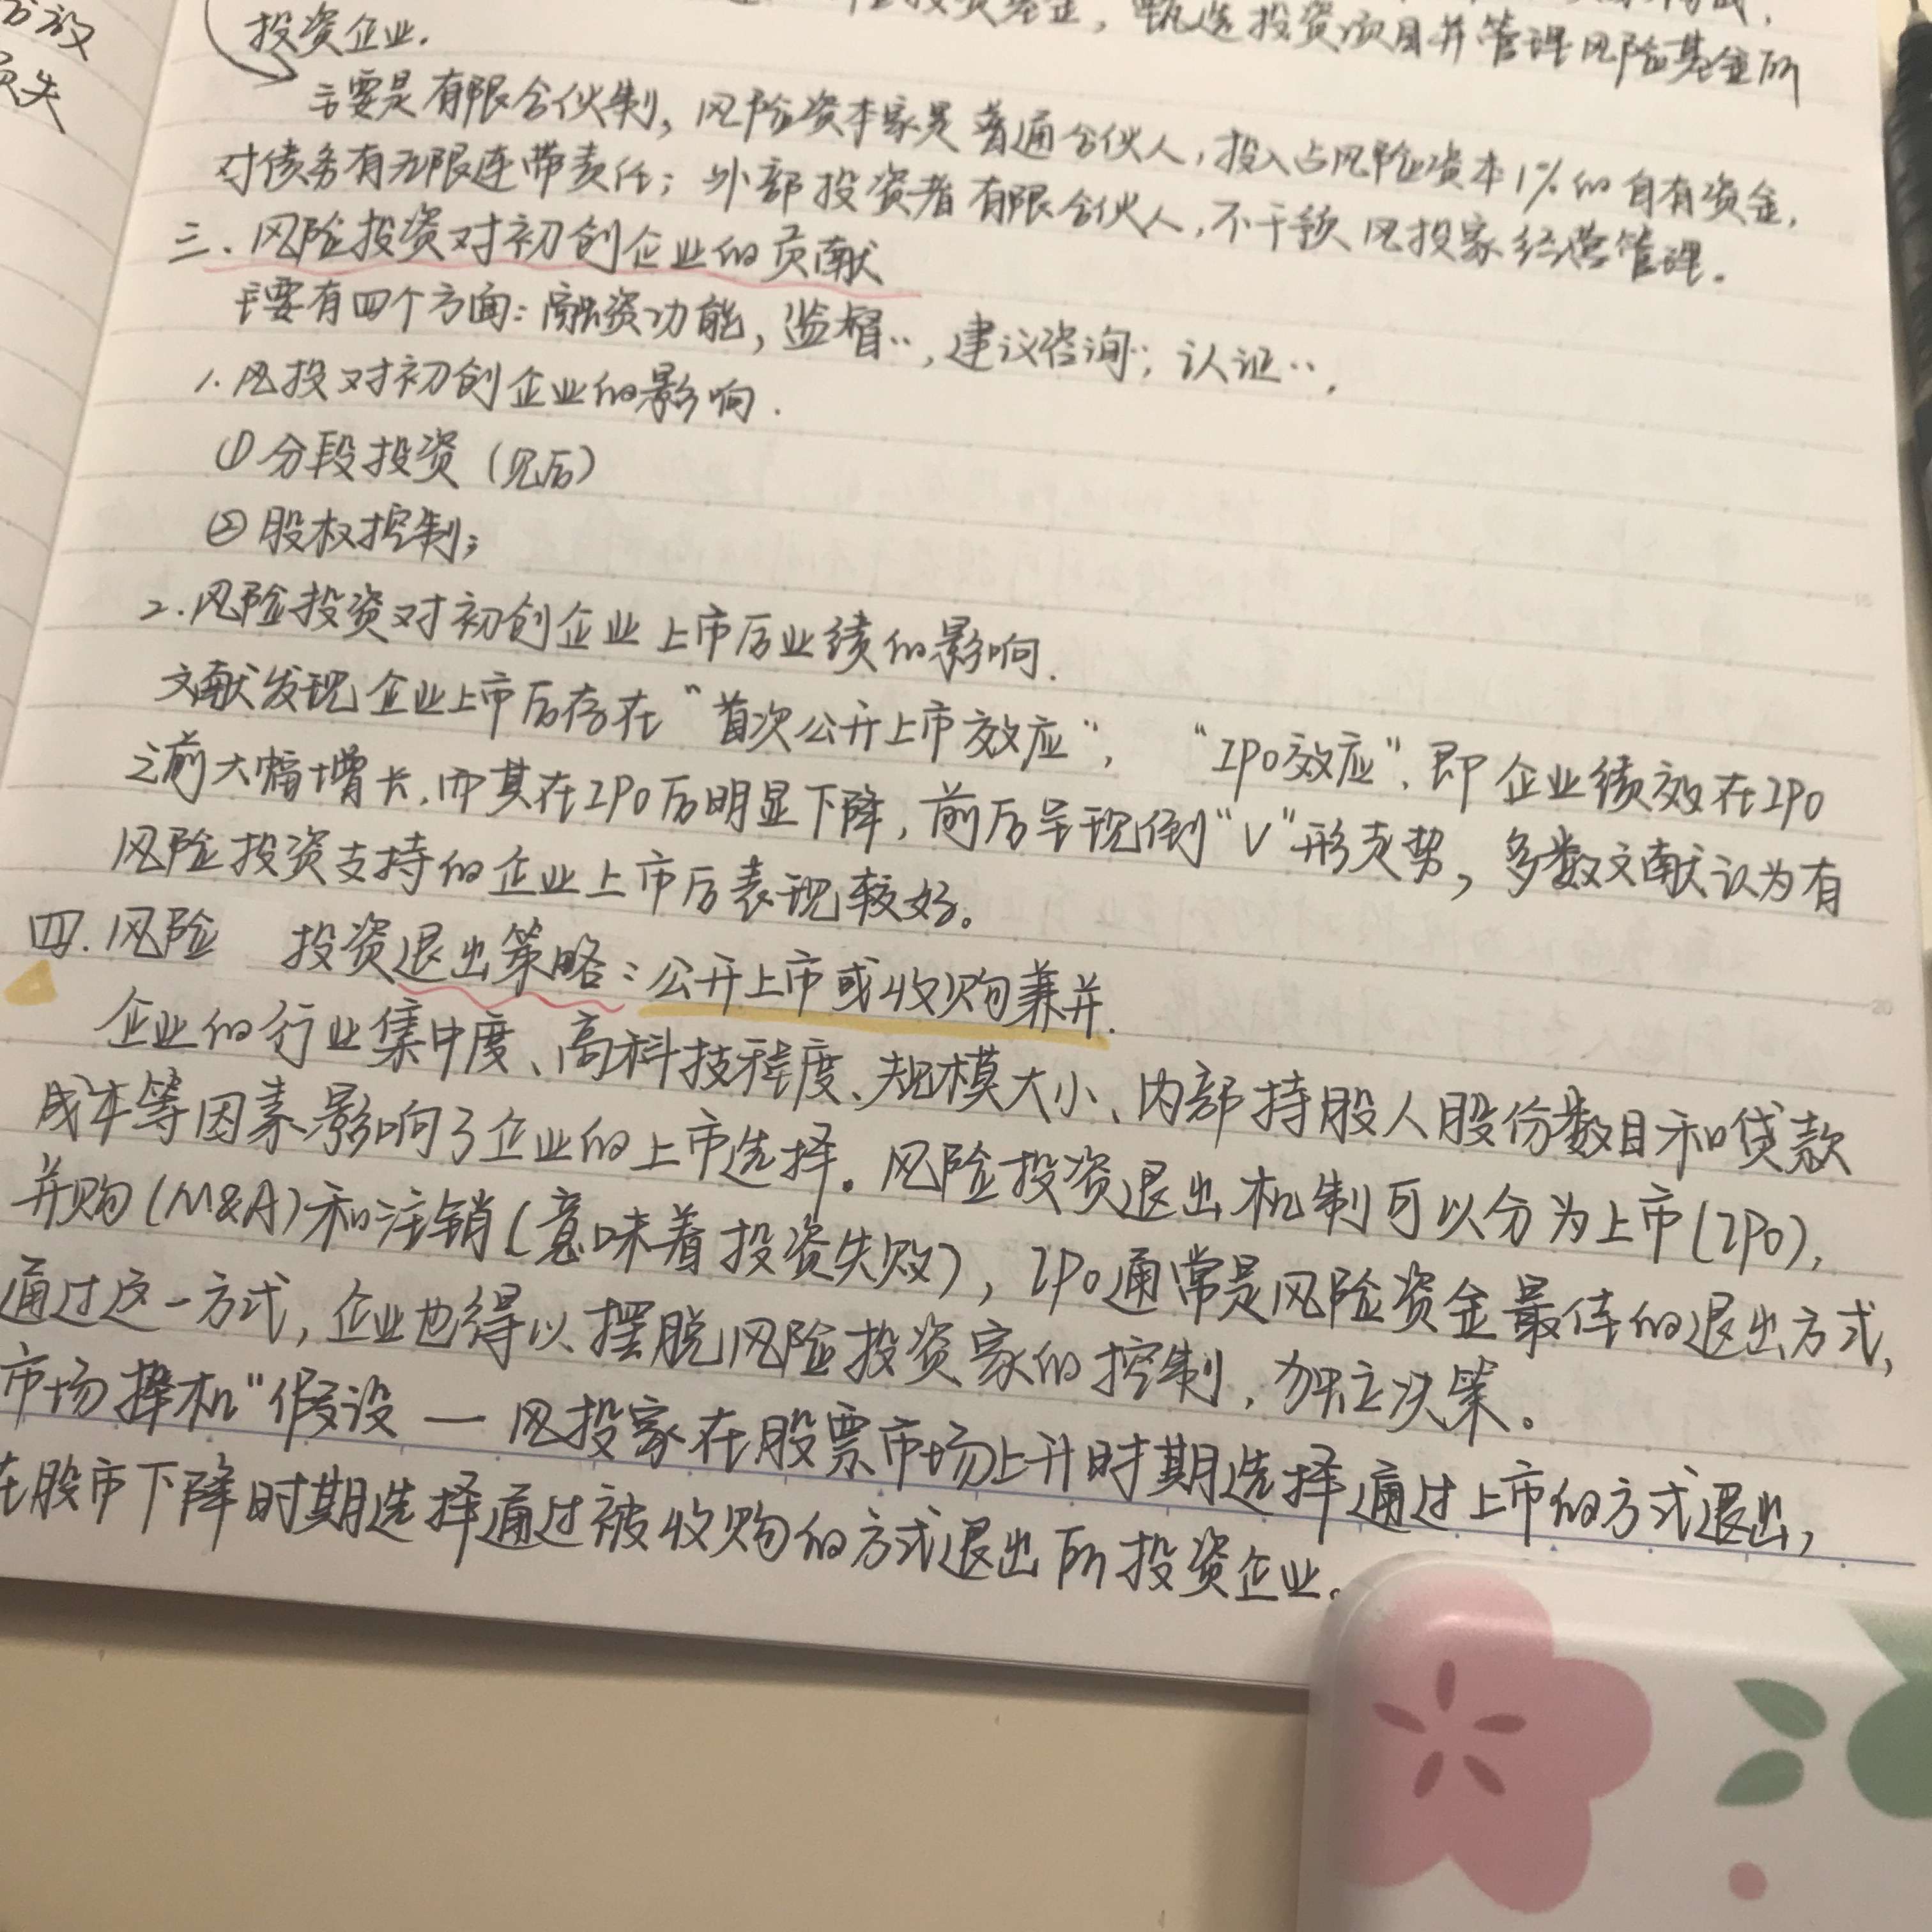 方放
损失
投资基金，甄选投资项目并管理风险基金所
投资企业.
主要是有限合伙制，风险资本家是普通合伙人，投入占风险资本1%的自有资金，
对债务有无限连带责任；外部投资者有限合伙人，不干预风投家经营管理.
三.风险投资对初创企业的贡献
主要有四个方面：融资功能，监督‥，建议咨询‥，认证‥.
1.风投对初创企业的影响.
①分段投资（见后）
②股权控制；
2.风险投资对初创企业上市后业绩的影响.
文献发现企业上市后存在“首次公开上市效应”， “IPO效应”，即企业绩效在IPO
之前大幅增长，而其在IPO后明显下降，前后呈现倒“V”形走势，多数文献认为有
风险投资支持的企业上市后表现较好。
四.风险 投资退出策略：公开上市或收购兼并.
企业的行业集中度、高科技程度、规模大小、内部持股人股份数目和贷款
成本等因素影响了企业的上市选择。风险投资退出机制可以分为上市(IPO)，
并购(M&A)和注销(意味着投资失败)，IPO通常是风险资金最佳的退出方式，
通过这一方式，企业也得以摆脱风险投资家的控制，独立决策。
市场择机”假设 — 风投家在股票市场上升时期选择通过上市的方式退出，
在股市下降时期选择通过被收购的方式退出所投资企业.